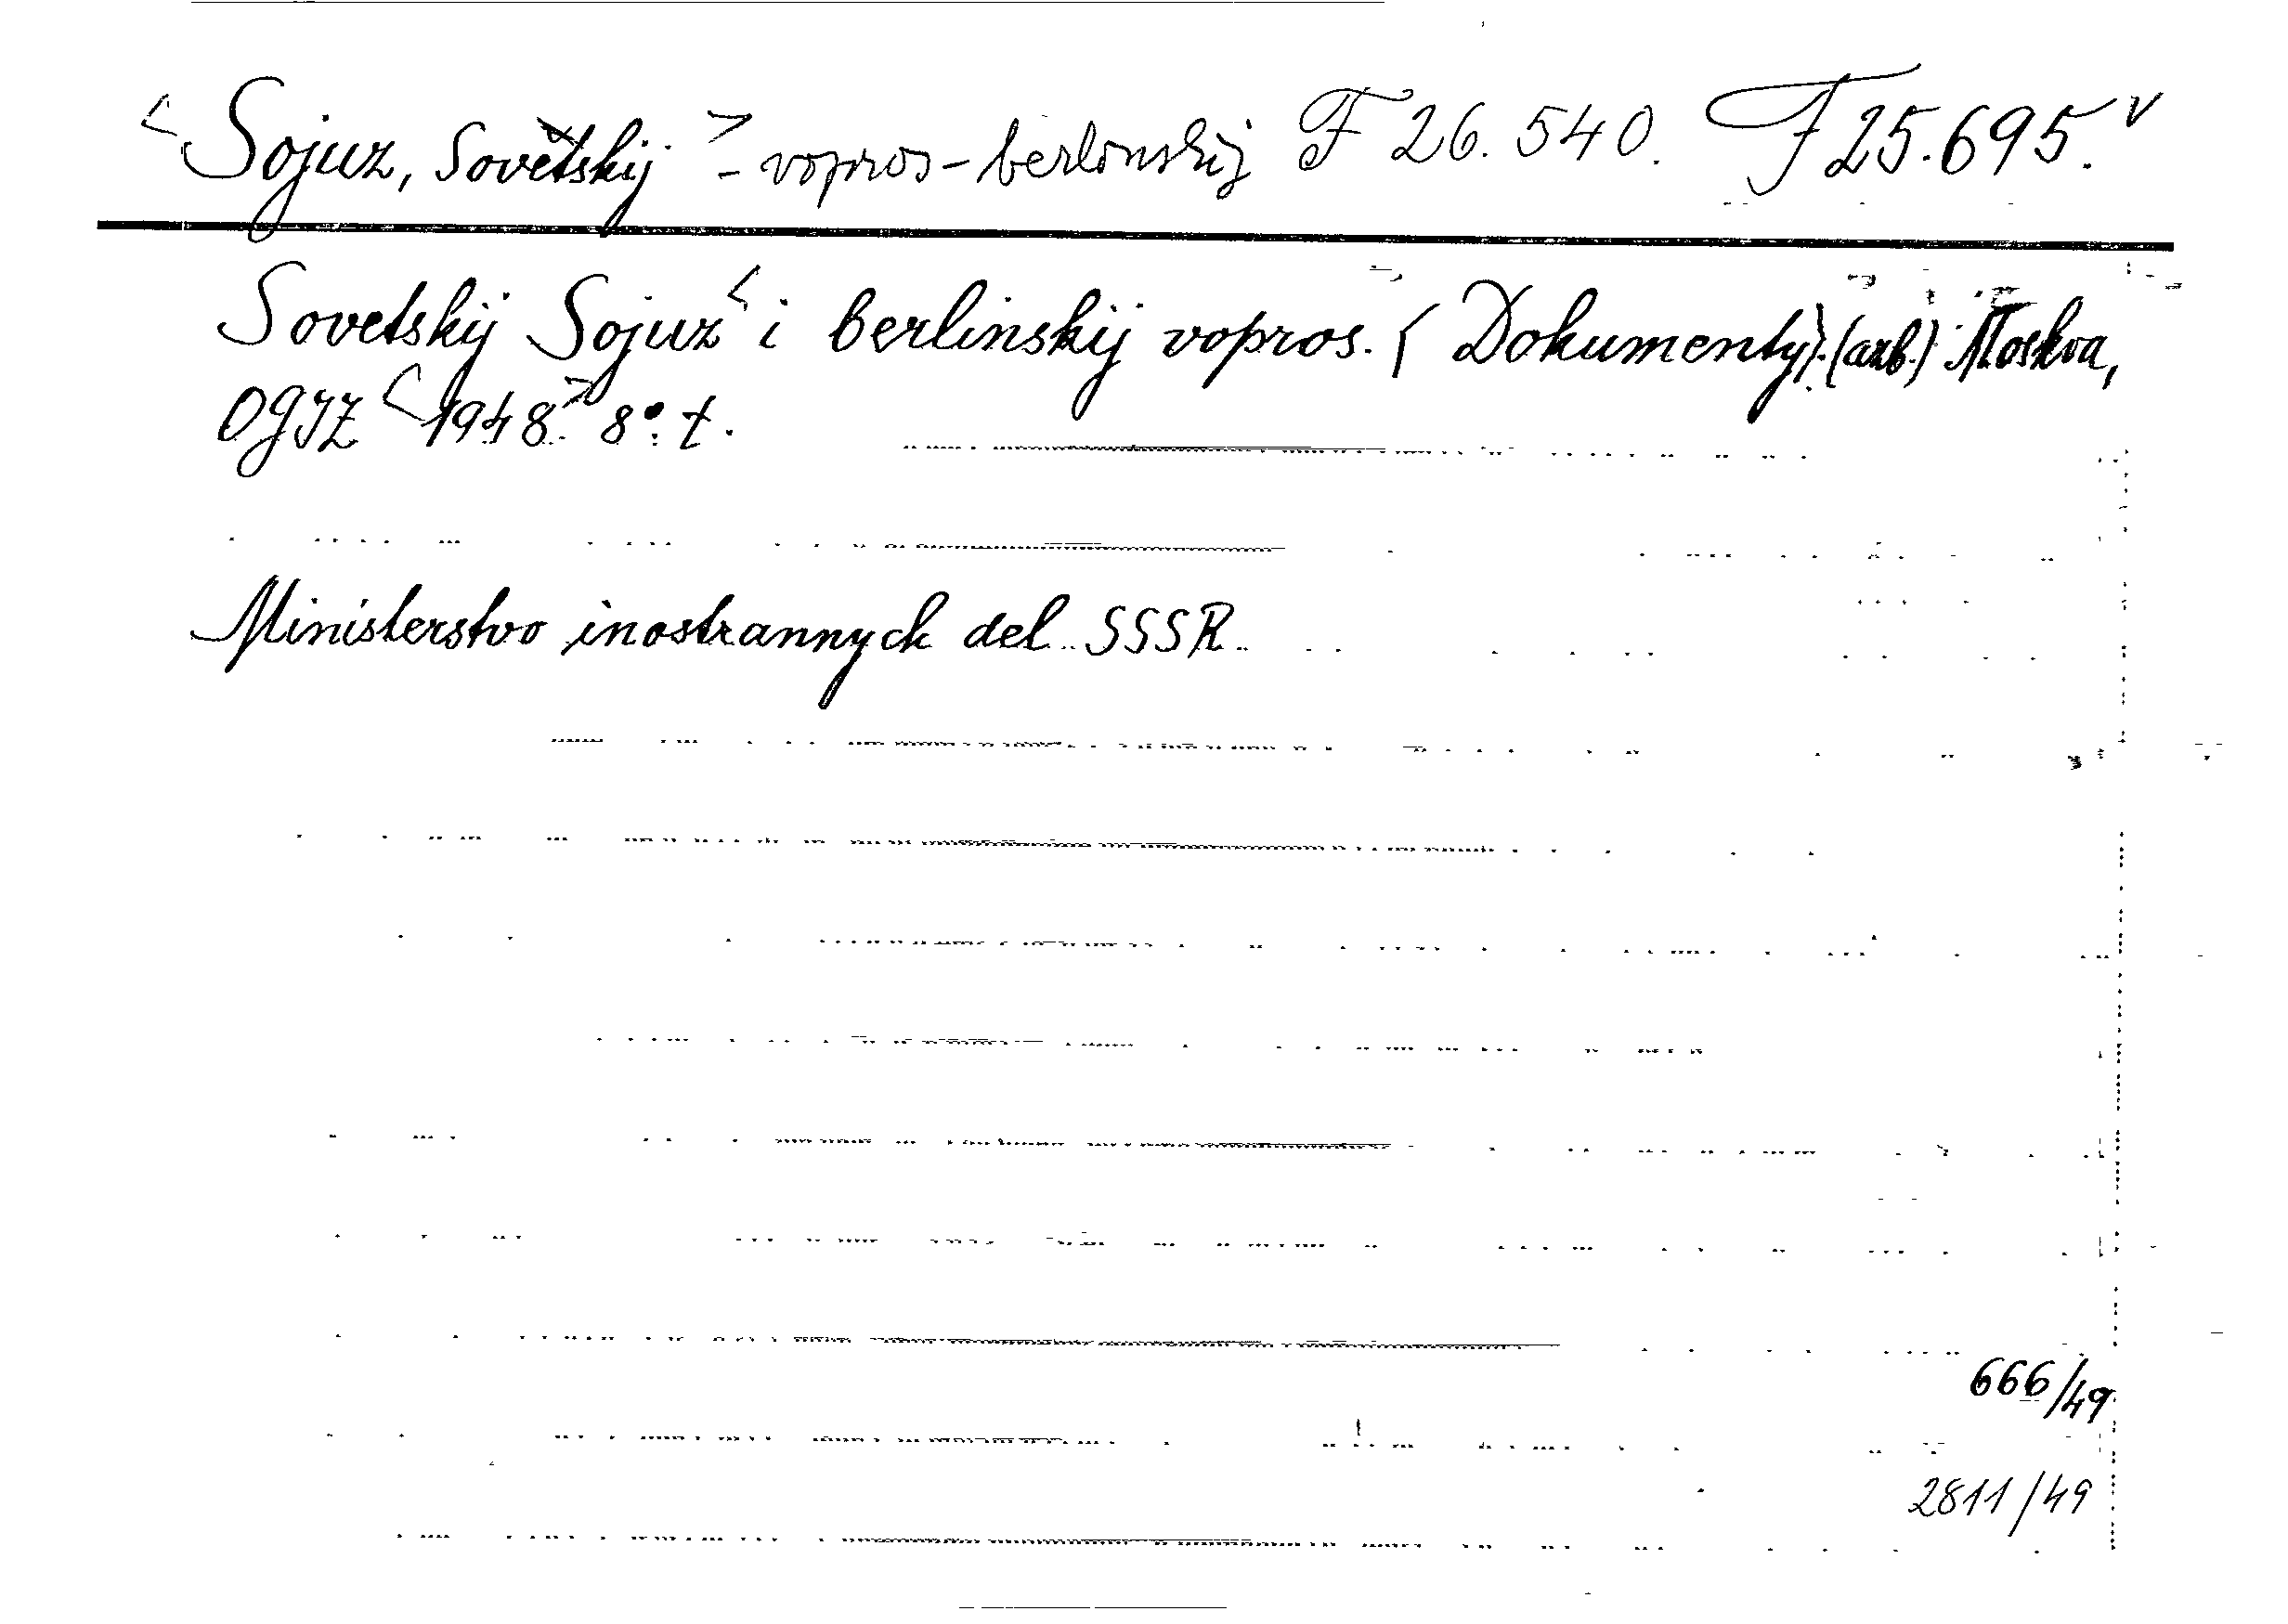 <Sojuz, Sovětskij> - vopros - berlinskij F 26.540. F 25.695.
Sovetskij Sojuz i berlinskij vopros. (Dokumenty). (azb.) Moskva,
OGIZ <1948> 8°. t.
Ministerstvo inostrannych del SSSR.
666/49
2811/49